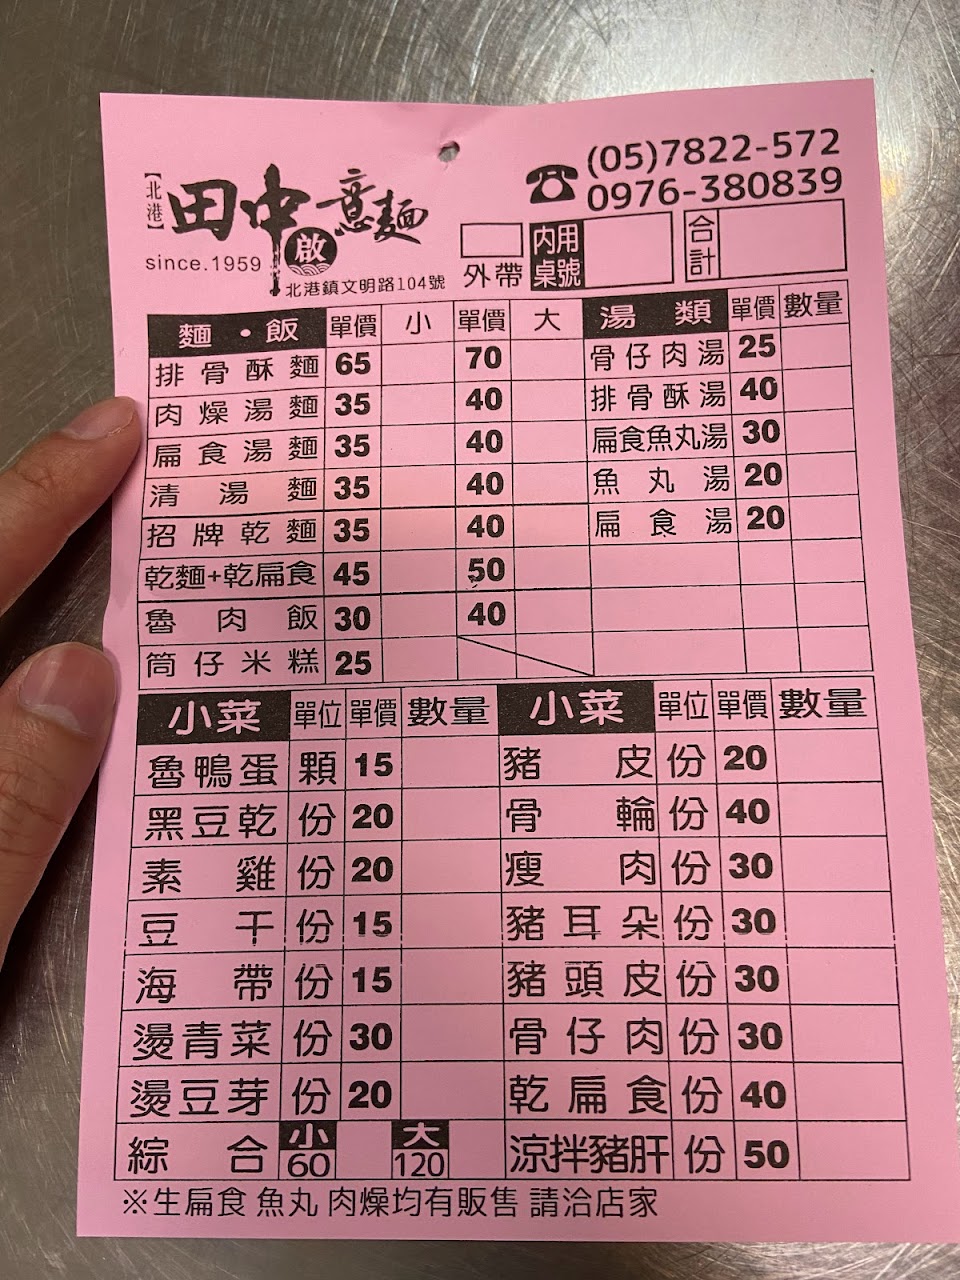 (05)7822-572
0976-380839
【北港】田中啟意麵
since.1959
北港鎮文明路104號
外帶 內用桌號 合計
麵・飯 單價 小 單價 大 湯類 單價 數量
排骨酥麵 65 70 骨仔肉湯 25
肉燥湯麵 35 40 排骨酥湯 40
扁食湯麵 35 40 扁食魚丸湯 30
清湯麵 35 40 魚丸湯 20
招牌乾麵 35 40 扁食湯 20
乾麵+乾扁食 45 50
魯肉飯 30 40
筒仔米糕 25
小菜 單位 單價 數量 小菜 單位 單價 數量
魯鴨蛋 顆 15 豬皮 份 20
黑豆乾 份 20 骨輪 份 40
素雞 份 20 瘦肉 份 30
豆干 份 15 豬耳朵 份 30
海帶 份 15 豬頭皮 份 30
燙青菜 份 30 骨仔肉 份 30
燙豆芽 份 20 乾扁食 份 40
綜合 小 60 大 120 涼拌豬肝 份 50
※生扁食 魚丸 肉燥均有販售 請洽店家